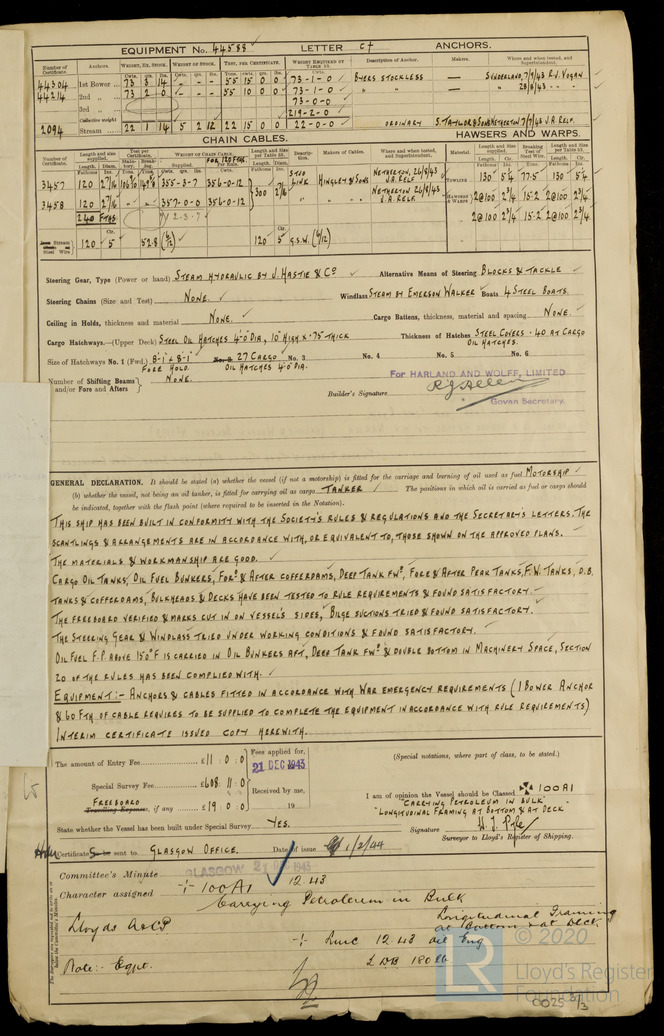 EQUIPMENT No. 44588 LETTER Cf ANCHORS.
Number of Certificate. Anchors. Weight, Ex. Stock. Weight of Stock. Test, per Certificate. Weight Required by Table 53. Description of Anchor. Makers. Where and when tested, and Superintendent.
Cwts. qrs. lbs. Cwts. qrs. lbs. Tons. cwts. qrs. lbs. Cwts.
44304 1st Bower 73 3 14 - - - 55 15 0 0 73-1-0 Byers Stockless — Sunderland, 7/9/43 R.J. Vogan
44214 2nd „ 73 2 0 - - - 55 10 0 0 73-1-0 „ „ — 28/8/43 „
3rd „ 73-0-0
Collective weight 219-2-0
2094 Stream 22 1 14 5 2 12 22 15 0 0 22-0-0 Ordinary S. Taylor & Sons Netherton 7/7/43 J.A. Relf.
CHAIN CABLES. HAWSERS AND WARPS.
Number of Certificate. Length and size supplied. Test per Certificate. Weight of Chain Cable. For 120 Fths Length and size per Table 53. Description. Makers of Cables. Where and when tested, and Superintendent. Material. Length and size supplied. Breaking Test of Steel Wire. Length and size per Table 53.
3457 120 2 7/16 355-3-7 356-0-12 Stud Link Hingley & Sons Netherton, 26/8/43 J.A. Relf Towline 130 5¼ 77.5 130 5¼
3458 120 2 7/16 357-0-0 356-0-12 300 2 7/16 „ „ Netherton 26/8/43 J.A. Relf Hawsers & Warps 2@100 2¾ 15.2 2@100 2¾
240 Fths 712-3-7 2@100 2¾ 15.2 2@100 2¾
Stream Steel Wire 120 5 52.8 (6/12) 120 5 G.S.W. (6/12)
Steering Gear, Type (Power or hand) Steam Hydraulic by J. Hastie & Co Alternative Means of Steering Blocks & Tackle
Steering Chains (Size and Test) None. Windlass Steam by Emerson Walker Boats 4 Steel Boats.
Ceiling in Holds, thickness and material None. Cargo Battens, thickness, material and spacing None.
Cargo Hatchways.—(Upper Deck) Steel Oil Hatches 4'-0" Dia, 10" High x .75 Thick Thickness of Hatches Steel Covers .40 at Cargo
Oil Hatches.
Size of Hatchways No. 1 (Fwd.) 8'-1" x 8'-1" No. 2 27 Cargo No. 3 No. 4 No. 5 No. 6
Fore Hold. Oil Hatches 4'-0" Dia.
Number of Shifting Beams and/or Fore and Afters None.
For HARLAND AND WOLFF, LIMITED
Builder's Signature
Govan Secretary.
GENERAL DECLARATION. It should be stated (a) whether the vessel (if not a motorship) is fitted for the carriage and burning of oil used as fuel Motorship
(b) whether the vessel, not being an oil tanker, is fitted for carrying oil as cargo Tanker The positions in which oil is carried as fuel or cargo should
be indicated, together with the flash point (where required to be inserted in the Notation).
This ship has been built in conformity with the Society's Rules & Regulations and the Secretary's letters. The
scantlings & arrangements are in accordance with, or equivalent to, those shown on the approved plans.
The materials & workmanship are good.
Cargo Oil Tanks, Oil Fuel Bunkers, Forᵈ & After Cofferdams, Deep Tank Fwᵈ, Fore & After Peak Tanks, F.W. Tanks, D.B.
Tanks & Cofferdams, Bulkheads & Decks have been tested to rule requirements & found satisfactory.
The freeboard verified & marks cut in on vessel's sides, Bilge suctions tried & found satisfactory.
The Steering Gear & Windlass tried under working conditions & found satisfactory.
Oil Fuel F.P. above 150°F is carried in Oil Bunkers aft, Deep Tank Fwᵈ & double bottom in Machinery Space, Section
20 of the Rules has been complied with.
Equipment:- Anchors & cables fitted in accordance with War emergency requirements (1 Bower Anchor
& 60 Fth of cable requires to be supplied to complete the equipment in accordance with rule requirements)
Interim certificate issued copy herewith.
The amount of Entry Fee £11 : 0 : 0 Fees applied for, (Special notations, where part of class, to be stated.)
21 DEC 1943
Special Survey Fee £608 : 11 : 0 Received by me,
Freeboard
Travelling Expenses, if any £19 : 0 : 0 19
I am of opinion the Vessel should be Classed ✠ 100 A1
"Carrying Petroleum in Bulk"
"Longitudinal Framing at Bottom & at Deck
State whether the Vessel has been built under Special Survey Yes.
Signature H. J. Pyle
Surveyor to Lloyd's Register of Shipping.
Certificate to be sent to Glasgow Office. Date of issue 1/2/44
Committee's Minute GLASGOW 21 DEC 1943
Character assigned 100 A1 12.43
Carrying Petroleum in Bulk
Longitudinal Framing
at Bottom & at Deck
Lloyds A & CP
LMC 12.43 Oil Eng
Note:- Eqpt. 2 DB 180 lb
© 2020
LR
Lloyd's Register
Foundation
0025 3/3